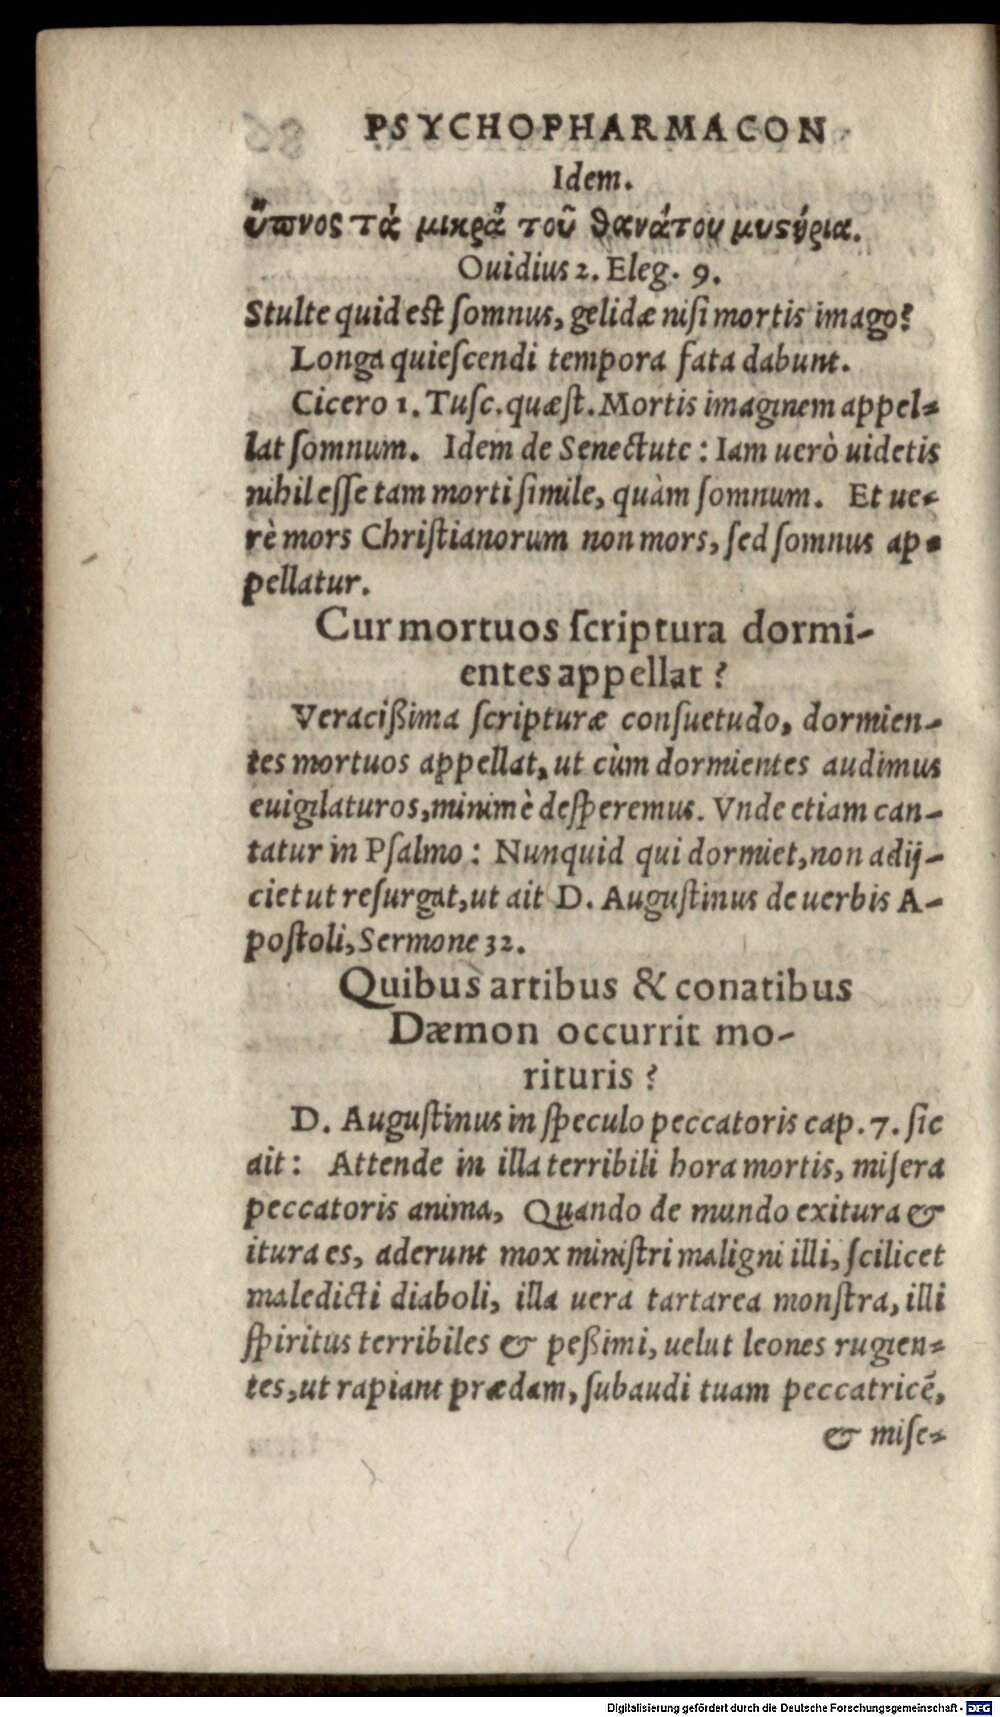 PSYCHOPHARMACON
Idem.
ὕπνος τὰ μικρὰ τοῦ θανάτου μυςήρια.
Ouidius 2. Eleg. 9.
Stulte quid est ſomnus, gelidæ niſi mortis imago?
Longa quieſcendi tempora fata dabunt.
Cicero 1. Tuſc. quæſt. Mortis imaginem appel-
lat ſomnum. Idem de Senectute: Iam uerò uidetis
nihil eſſe tam morti ſimile, quàm ſomnum. Et ue-
rè mors Chriſtianorum non mors, ſed ſomnus ap-
pellatur.
Cur mortuos ſcriptura dormi-
entes appellat?
Veracißima ſcripturæ conſuetudo, dormien-
tes mortuos appellat, ut cùm dormientes audimus
euigilaturos, minimè deſperemus. Vnde etiam can-
tatur in Pſalmo: Nunquid qui dormiet, non adij-
ciet ut reſurgat, ut ait D. Auguſtinus de uerbis A-
poſtoli, Sermone 32.
Quibus artibus & conatibus
Dæmon occurrit mo-
rituris?
D. Auguſtinus in ſpeculo peccatoris cap. 7. ſic
ait: Attende in illa terribili hora mortis, miſera
peccatoris anima, Quando de mundo exitura &
itura es, aderunt mox miniſtri maligni illi, ſcilicet
maledicti diaboli, illa uera tartarea monſtra, illi
ſpiritus terribiles & peßimi, uelut leones rugien-
tes, ut rapiant prædam, ſubaudi tuam peccatricẽ,
& miſe-
Digitalisierung gefördert durch die Deutsche Forschungsgemeinschaft - DFG